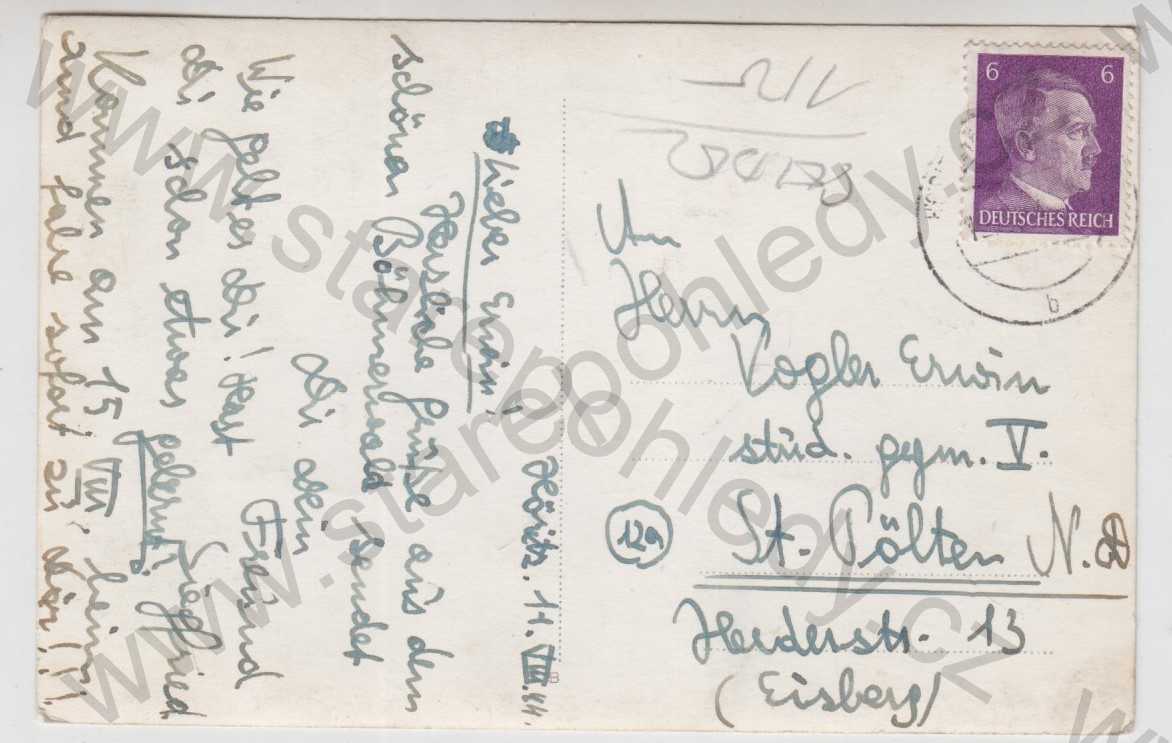 Höritz. 11. VIII. 44.
Lieber Erwin!
Herzliche Grüße aus dem
schönen Böhmerwald sendet
dir dein
Freund
Siegfried
Wie geht es dir! Hast
du schon etwas gelernt?
Kommen am 15. VIII. heim,
und fahre sofort zu dir!!!
1/2
An
Herrn
Vogler Erwin
stud. gym. V.
12a
St. Pölten N.D
Herderstr. 13
(Eisberg)
6 6
DEUTSCHES REICH
b
www.stareponledy.cz